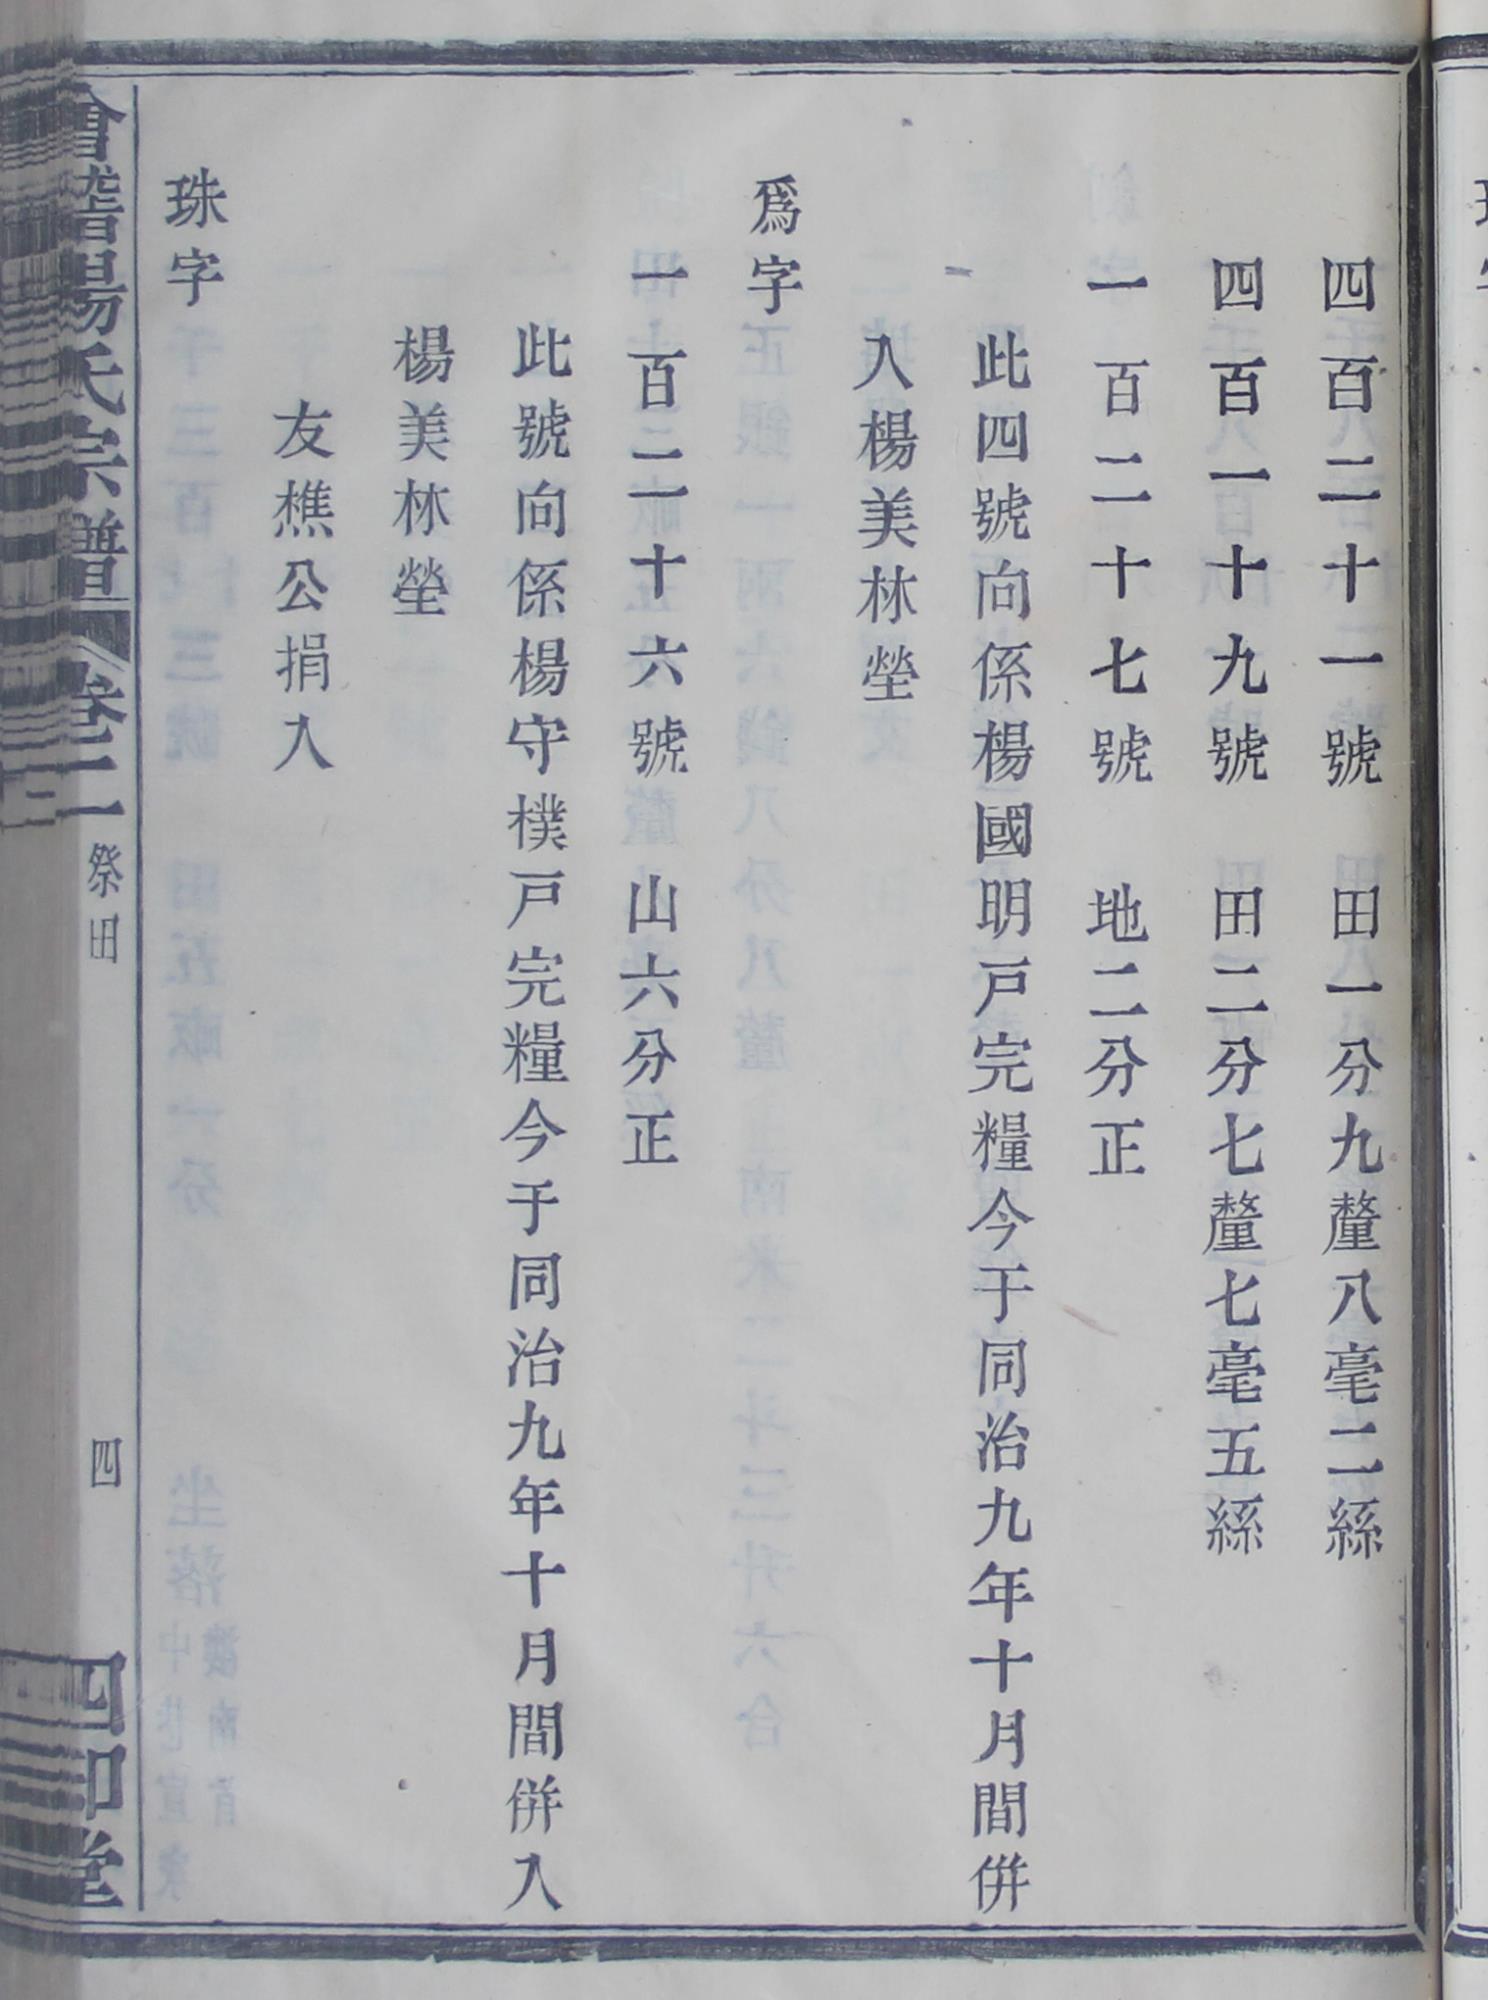 四百二十一號　田一分九釐八毫二絲
四百一十九號　田二分七釐七毫五絲
一百二十七號　地二分正
此四號向係楊國明戸完糧今于同治九年十月間併
入楊美林塋
爲字
一百二十六號　山六分正
此號向係楊守樸戸完糧今于同治九年十月間併入
楊美林塋
友樵公捐入
珠字
會稽楊氏宗譜　卷二　祭田　四　四知堂